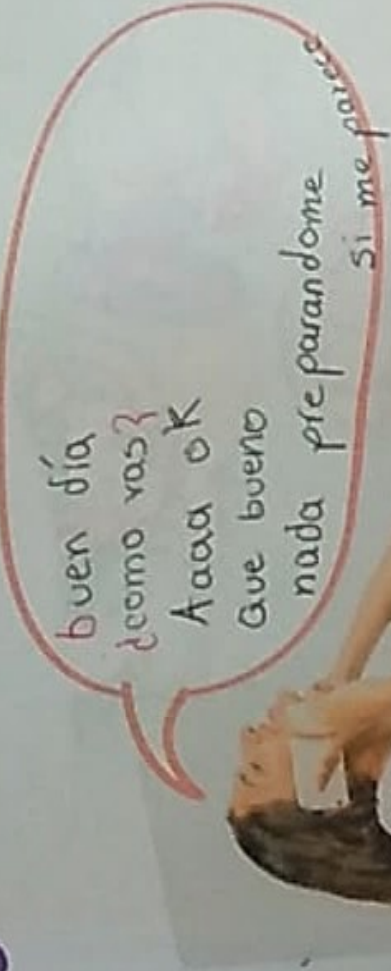 buen día
¿como vas?
Aaaa oK
Que bueno
nada preparandome
si me parece